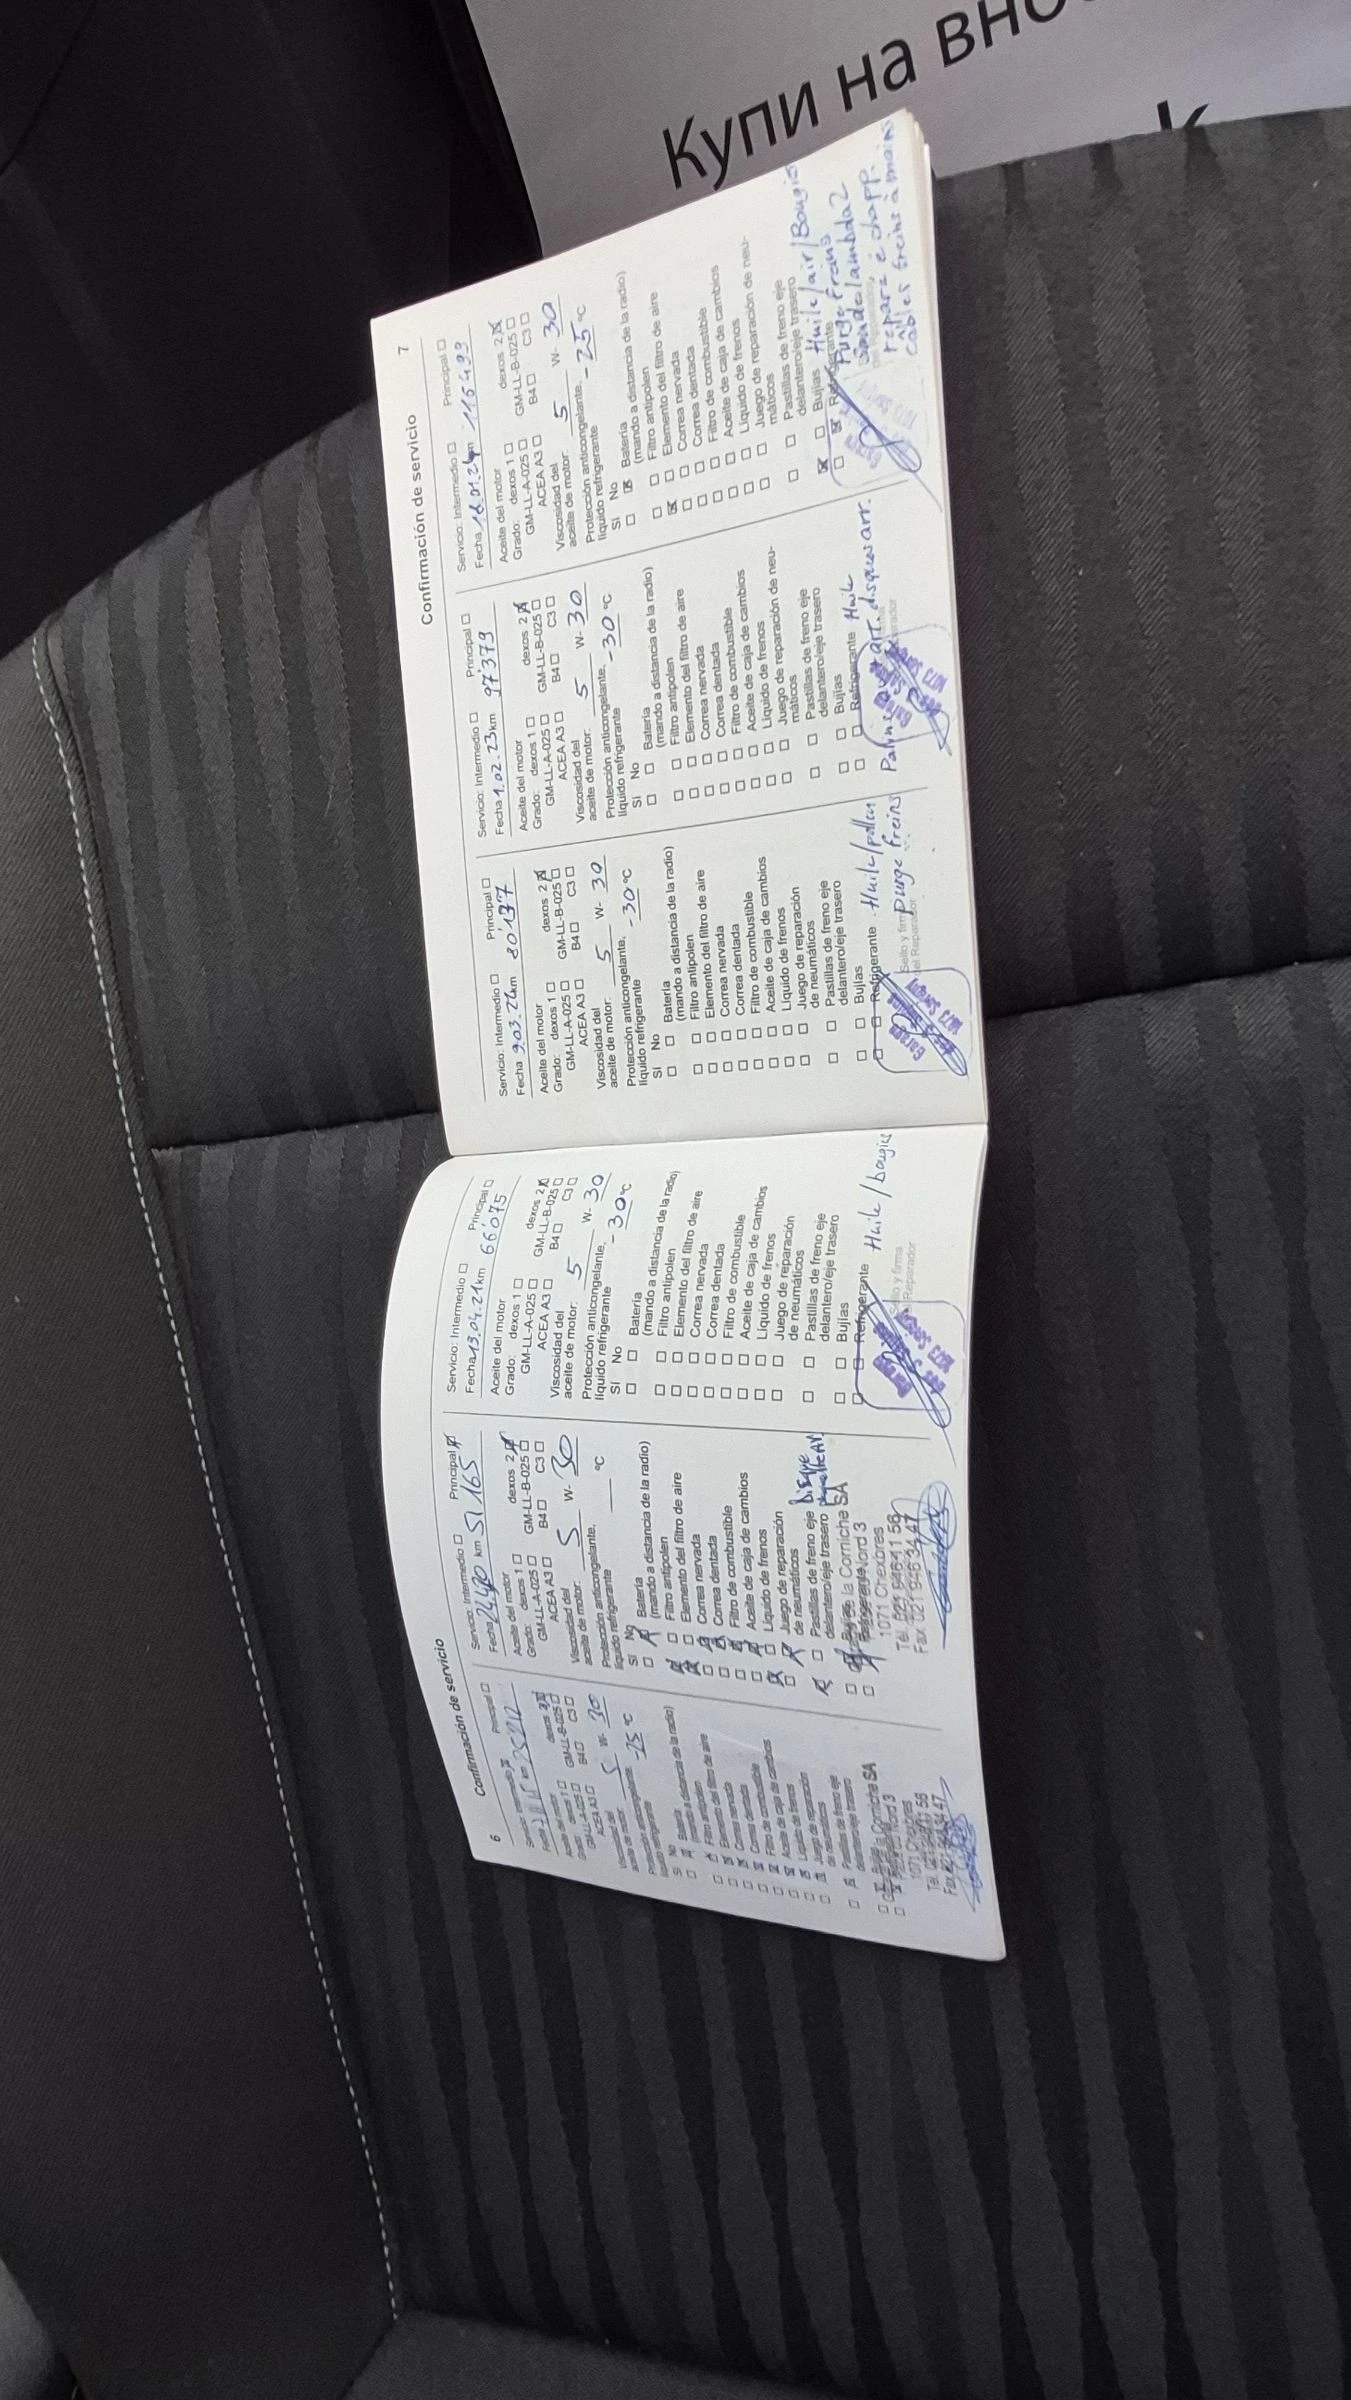 Купи на
6
Confirmación de servicio
Servicio: Intermedio Principal
Fecha km 25212
Aceite del motor
Grado: dexos 1 dexos 2
GM-LL-A-025 GM-LL-B-025
ACEA A3 B4 C3
Viscosidad del
aceite de motor: 5 W- 30
Protección anticongelante,
líquido refrigerante -25 °C
Sí No
Batería
(mando a distancia de la radio)
Filtro antipolen
Elemento del filtro de aire
Correa nervada
Correa dentada
Filtro de combustible
Aceite de caja de cambios
Líquido de frenos
Juego de reparación
de neumáticos
Pastillas de freno eje
delantero/eje trasero
de la Corniche SA
Nord 3
1071 Chexbres
Servicio: Intermedio Principal
Fecha km 51165
Aceite del motor
Grado: dexos 1 dexos 2
GM-LL-A-025 GM-LL-B-025
ACEA A3 B4 C3
Viscosidad del
aceite de motor: 5 W- 30
Protección anticongelante,
líquido refrigerante °C
Sí No
Batería
(mando a distancia de la radio)
Filtro antipolen
Elemento del filtro de aire
Correa nervada
Correa dentada
Filtro de combustible
Aceite de caja de cambios
Líquido de frenos
Juego de reparación
de neumáticos
Disque
Pastillas de freno eje
delantero/eje trasero
de la Corniche SA
Nord 3
1071 Chexbres
Tél. 021 946 11 56
Fax 021 946 34 47
Servicio: Intermedio Principal
Fecha 19.04.21 km 66'075
Aceite del motor
Grado: dexos 1 dexos 2
GM-LL-A-025 GM-LL-B-025
ACEA A3 B4 C3
Viscosidad del
aceite de motor: 5 W- 30
Protección anticongelante,
líquido refrigerante -30 °C
Sí No
Batería
(mando a distancia de la radio)
Filtro antipolen
Elemento del filtro de aire
Correa nervada
Correa dentada
Filtro de combustible
Aceite de caja de cambios
Líquido de frenos
Juego de reparación
de neumáticos
Pastillas de freno eje
delantero/eje trasero
Bujías
Refrigerante Huile/bougies
Sello y firma
Reparador
Garage
1073 Savigny
Confirmación de servicio
7
Servicio: Intermedio Principal
Fecha 9.03.22 km 80'177
Aceite del motor
Grado: dexos 1 dexos 2
GM-LL-A-025 GM-LL-B-025
ACEA A3 B4 C3
Viscosidad del
aceite de motor: 5 W- 30
Protección anticongelante,
líquido refrigerante -30 °C
Sí No
Batería
(mando a distancia de la radio)
Filtro antipolen
Elemento del filtro de aire
Correa nervada
Correa dentada
Filtro de combustible
Aceite de caja de cambios
Líquido de frenos
Juego de reparación
de neumáticos
Pastillas de freno eje
delantero/eje trasero
Bujías
Refrigerante Huile/pollen
Purge freins
Sello y firma
del Reparador
Garage
1073 Savigny
Servicio: Intermedio Principal
Fecha 1.02.23 km 97'379
Aceite del motor
Grado: dexos 1 dexos 2
GM-LL-A-025 GM-LL-B-025
ACEA A3 B4 C3
Viscosidad del
aceite de motor: 5 W- 30
Protección anticongelante,
líquido refrigerante -30 °C
Sí No
Batería
(mando a distancia de la radio)
Filtro antipolen
Elemento del filtro de aire
Correa nervada
Correa dentada
Filtro de combustible
Aceite de caja de cambios
Líquido de frenos
Juego de reparación de neu-
máticos
Pastillas de freno eje
delantero/eje trasero
Bujías
Refrigerante Huile
disques arr.
Garage
1073
Servicio: Intermedio Principal
Fecha 18.01.24 km 116499
Aceite del motor
Grado: dexos 1 dexos 2
GM-LL-A-025 GM-LL-B-025
ACEA A3 B4 C3
Viscosidad del
aceite de motor: 5 W- 30
Protección anticongelante,
líquido refrigerante -25 °C
Sí No
Batería
(mando a distancia de la radio)
Filtro antipolen
Elemento del filtro de aire
Correa nervada
Correa dentada
Filtro de combustible
Aceite de caja de cambios
Líquido de frenos
Juego de reparación de neu-
máticos
Pastillas de freno eje
delantero/eje trasero
Bujías Huile/air/Bougies
Refrigerante Purge freins
Sonde lambda 2
réparé échapp.
câbles freins à mains